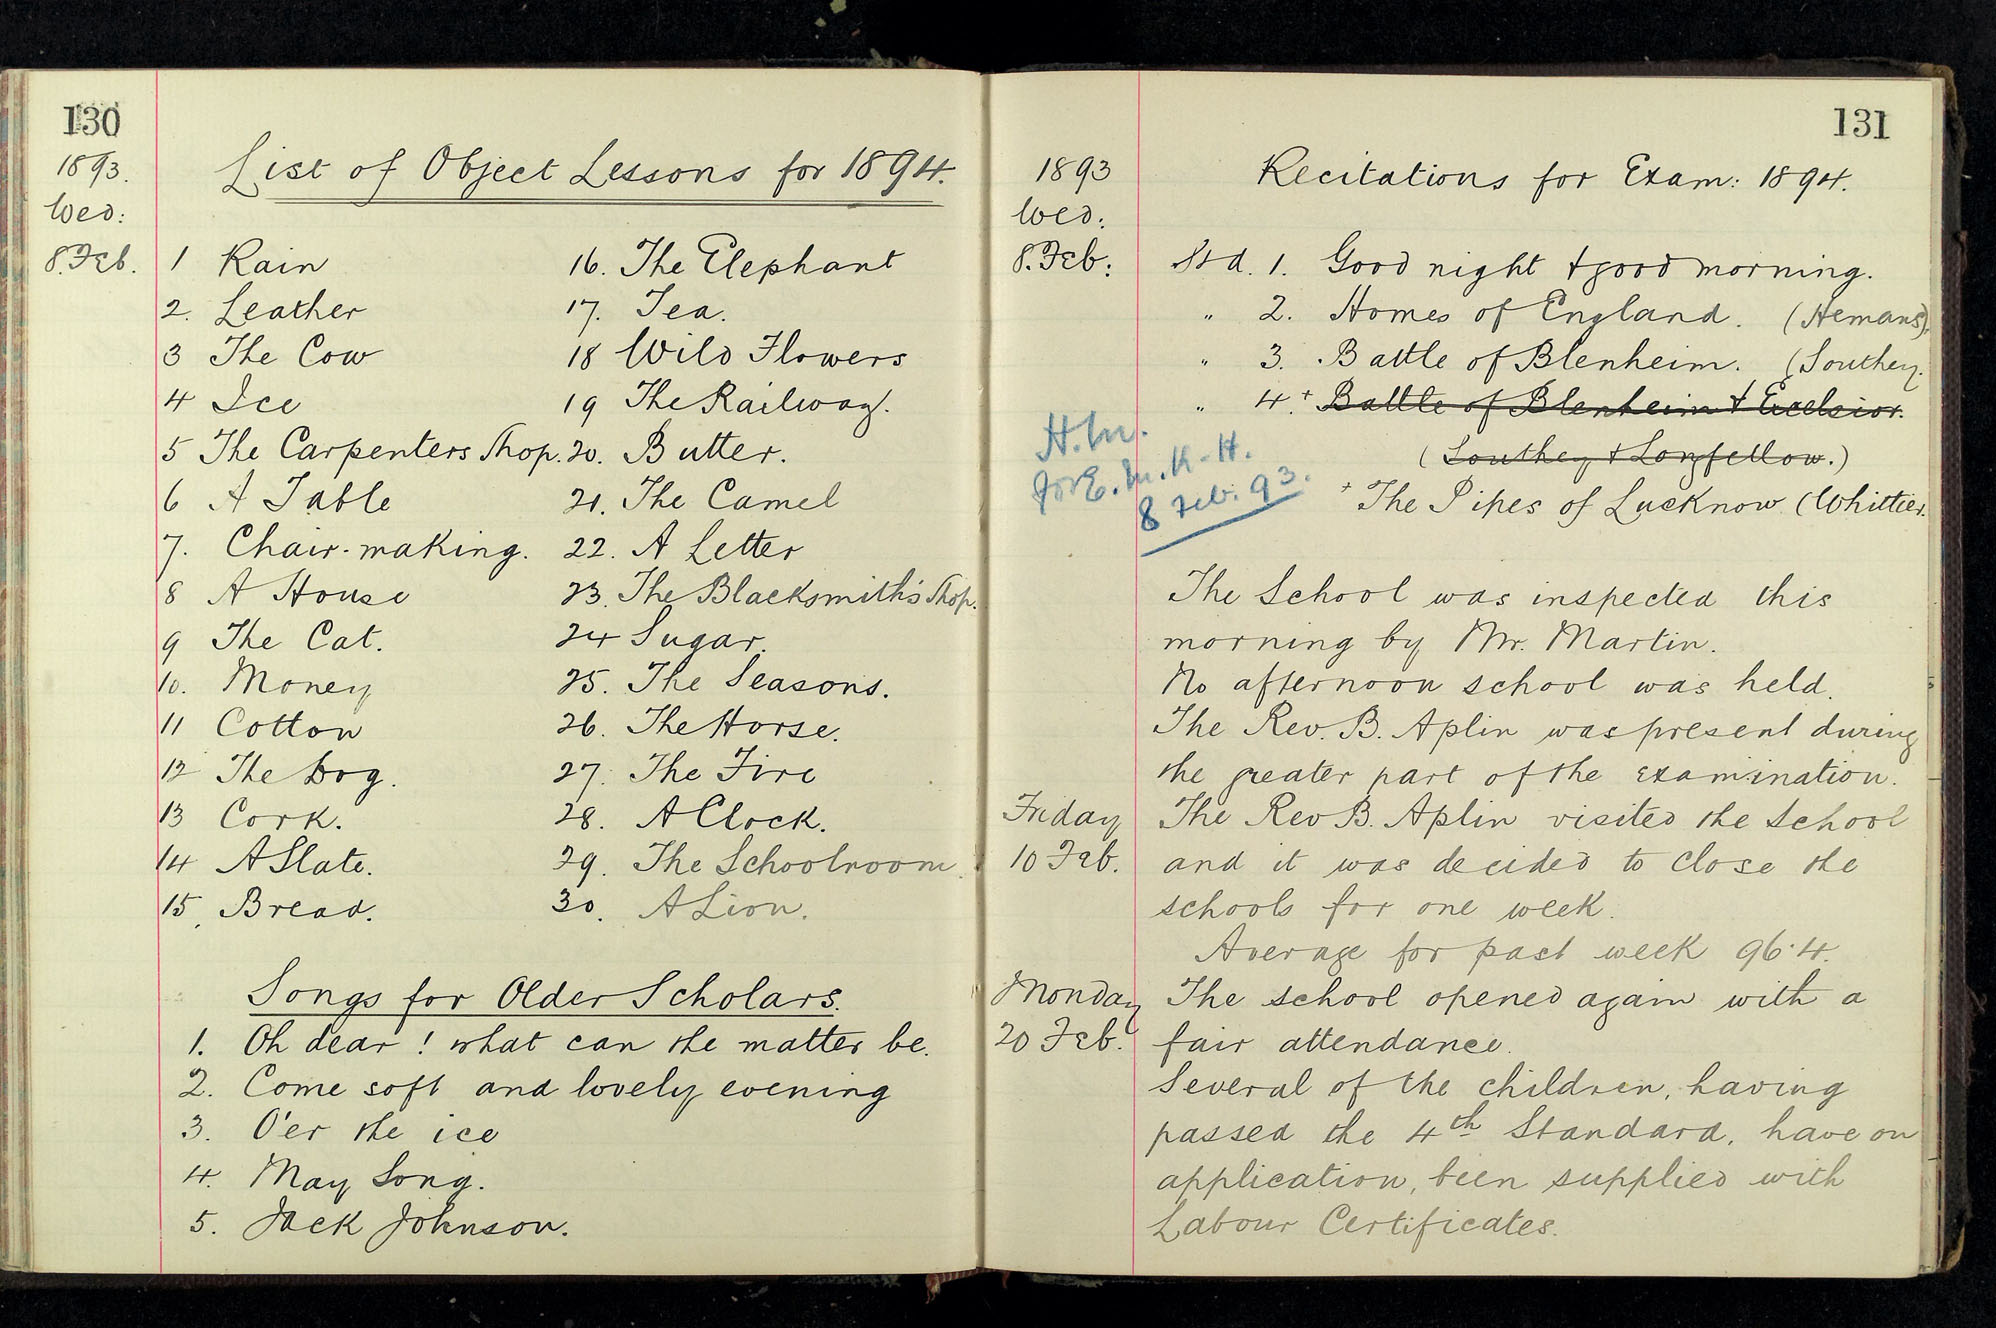 130
1893.
Wed:
8. Feb.
List of Object Lessons for 1894.
1 Rain
2. Leather
3 The Cow
4 Ice
5 The Carpenters Shop.
6 A Table
7. Chair-making.
8 A House
9 The Cat.
10. Money
11 Cotton
12 The Dog.
13 Cork.
14 A Slate.
15. Bread.
16. The Elephant
17. Tea.
18 Wild Flowers
19 The Railway.
20. Butter.
21. The Camel
22. A Letter
23. The Blacksmith's Shop.
24 Sugar.
25. The Seasons.
26. The Horse.
27. The Fire
28. A Clock.
29. The Schoolroom.
30. A Lion.
Songs for Older Scholars.
1. Oh dear! what can the matter be.
2. Come soft and lovely evening
3. O'er the ice
4. May Song.
5. Jack Johnson.
131
1893
Wed:
8. Feb:
Recitations for Exam: 1894.
Std. 1. Good night & good morning.
" 2. Homes of England. (Hemans).
" 3. Battle of Blenheim. (Southey.
" 4.+ Battle of Blenheim & Excelsior.
(Southey & Longfellow.)
+ The Pipes of Lucknow (Whittier.
H.M.
for E.M.K-H.
8 Feb. 93.
The School was inspected this
morning by Mr. Martin.
No afternoon school was held.
The Rev. B. Aplin was present during
the greater part of the examination.
Friday
10 Feb.
The Rev B. Aplin visited the school
and it was decided to close the
schools for one week.
Average for past week 96.4.
Monday
20 Feb.
The school opened again with a
fair attendance.
Several of the children, having
passed the 4th Standard, have on
application, been supplied with
Labour Certificates.